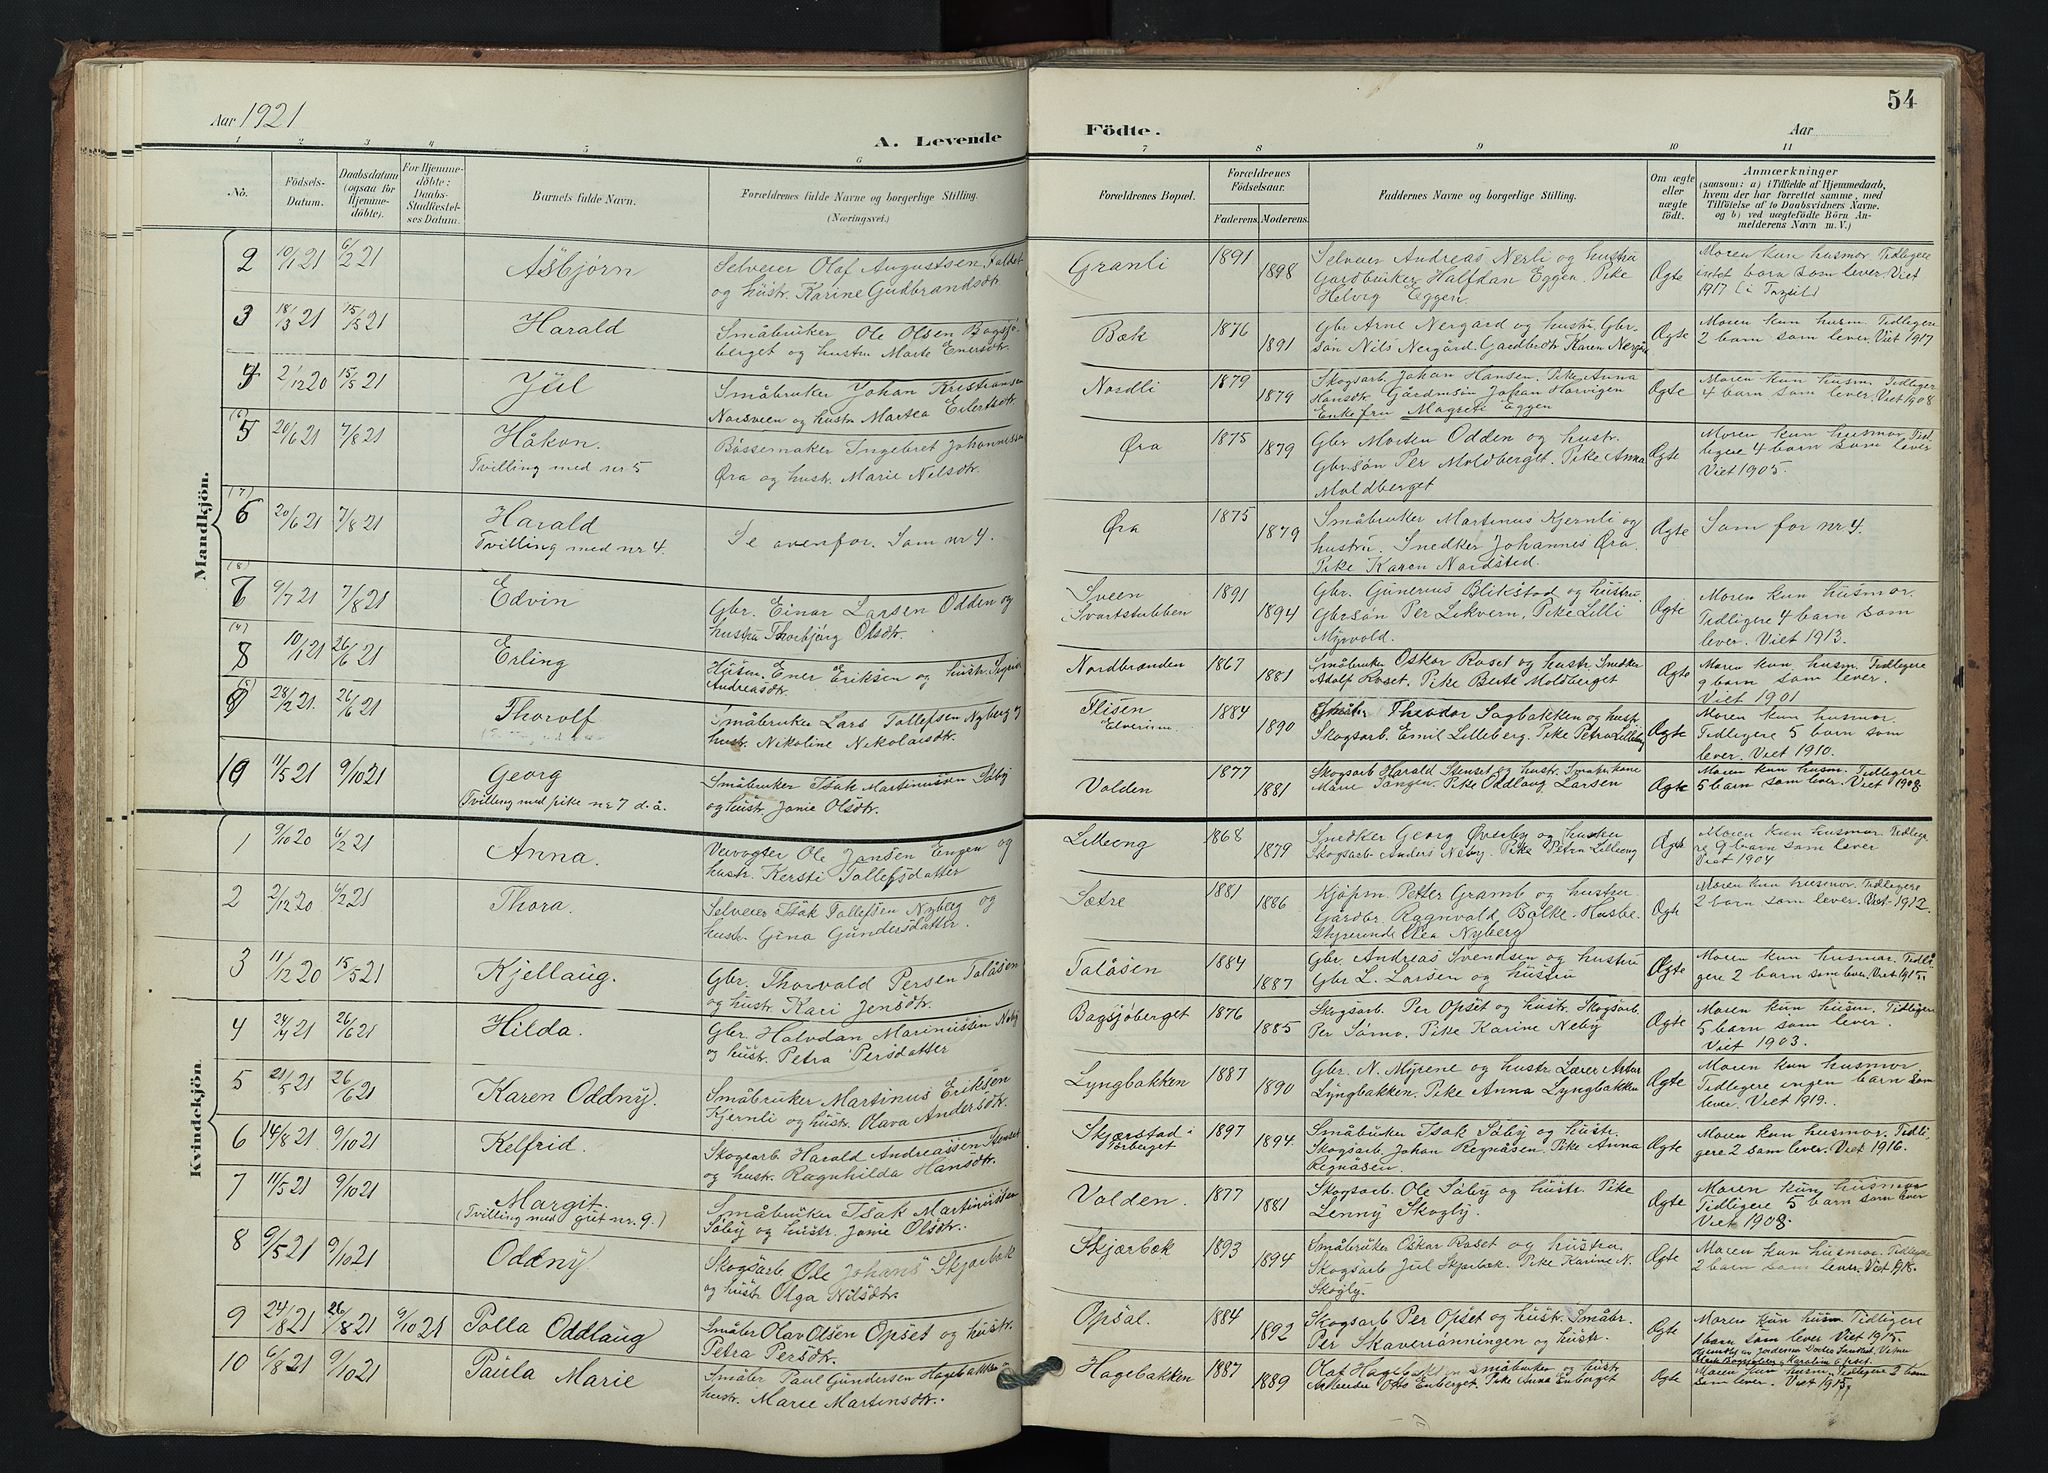 Aar 1921
A. Levende
Födte.
Aar
54
1 2 3 4 5 6 7 8 9 10 11
No.
Födsels-
Datum.
Daabsdatum
(ogsaa for
Hjemme-
döbte).
For Hjemme-
döbte:
Daabs-
Stadfæstel-
ses Datum.
Barnets fulde Navn.
Forældrenes fulde Navne og borgerlige Stilling.
(Næringsvei.)
Forældrenes Bopæl.
Forældrenes
Födselsaar.
Faderens. Moderens.
Faddernes Navne og borgerlige Stilling.
Om ægte
eller
uægte
födt.
Anmærkninger
(saasom: a) i Tilfælde af Hjemmedaab,
hvem der har forrettet samme, med
Tilföielse af to Daabsvidners Navne.
og b) ved uægtefödte Börn An-
melderens Navn m. V.)
Mandkjön.
2 10/1 21 6/2 21 Asbjørn
Selveier Olaf Augustsen
og hustr. Karine Gudbrandsdtr.
Granli 1891 1898
Selveier Andreas Nerli og hustru
Gardbruker Halfdan Eggen. Pike
Helvig Eggen.
Ægte
Moren kun husmor Tidligere
intet barn som lever. Viet
1917
3 18/3 21 15/5 21 Harald
Småbruker Ole Olsen Bagsjø-
berget og hustru Marte Enersdtr.
Bæk 1876 1891
Gbr Arne Nergård og hustr. Gbr-
søn Nils Nergård. Gardbrdtr Karen Nergård
Ægte
Moren kun husm. Tidligere
2 barn som lever. Viet 1917
4 2/12 20 15/5 21 Jul
Småbruker Johan Kristiansen
Norsveen og hustr. Martea Eilertsdtr.
Nordli 1879 1879
Skogsarb. Johan Hansen. Pike Anna
Hansdtr. Gårdmsøn Johan Horvigen
Enkefru Magrete Eggen
Ægte
Moren kun husm. Tidligere
4 barn som lever. Viet 1908
(6)
5 20/6 21 7/8 21 Håkon.
Tvilling med nr 5
Bøssemaker Ingebret Johannessen
Øra og hustr. Marie Nilsdtr.
Øra 1875 1879
Gbr Morten Odden og hustr.
Gbr.søn Per Moldberget. Pike Anna
Moldberget
Ægte
Moren kun husmor. Tid-
ligere 4 barn som lever
Viet 1905.
(7)
6 20/6 21 7/8 21 Harald
Tvilling med nr 4.
Se ovenfor. Som nr 4.
Øra 1875 1879
Småbruker Martinus Kjernli og
hustru. Snedker Johannes Øra.
Pike Karen Nordsted.
Ægte
Som for nr 4.
(8)
7 9/7 21 7/8 21 Edvin
Gbr. Einar Larsen Odden og
hustru Thorbjørg Olsdtr.
Sveen
Svartstubben 1891 1894
Gbr. Gunerius Blikstad og hustru.
Gbrsøn Per Lekvern. Pike Lilli
Myrvold.
Ægte
Moren kun husmor.
Tidligere 4 barn som
lever. Viet 1913.
(4)
8 10/1 21 26/6 21 Erling
Husm. Ener Eriksen og hustr. Sigrid
Andreasdtr.
Nordbranden 1867 1881
Småbruker Oskar Roset og hustr. Snedker
Adolf Roset. Pike Berte Moldberget
Ægte
Moren kun husm. Tidligere
9 barn som lever.
Viet 1901
(5)
9 28/2 21 26/6 21 Thorolf
Småbruker Lars Tollefsen Nyberg og
hustr. Nikoline Nikolaisdtr.
Flisen
Elverum. 1884 1890
Småbr. Theodor Sagbakken og hustr.
Skogsarb. Emil Lilleberg. Pike Petra Lilleberg
Ægte
Moren kun husmor.
Tidligere 5 barn som
lever. Viet 1910.
10 11/5 21 9/10 21 Georg
Tvilling med pike nr 7 d.å.
Småbruker Isak Martinusen Søby
og hustr. Janie Olsdtr.
Volden 1877 1881
Skogsarb Harald Stenset og hustr.
Marie Tangen. Pike Oddlaug Larsen
Ægte
Moren kun husm. Tidligere
5 barn som lever. Viet 1908
Kvindekjön
1 9/10 20 6/2 21 Anna.
Veivogter Ole Jansen Engen og
hustr. Kersti Tollefsdatter
Lilleeng 1868 1879
Snedker Georg Øverby og hustru
Skogsarb Anders Neby. Pike Petra Lilleeng
Ægte
Moren kun husmor. Tidlige-
re 9 barn som lever
Viet 1904
2 2/12 20 6/2 21 Thora.
Selveier Isak Tollefsen Nyberg og
hustr. Gina Gundersdatter.
Sætre 1881 1886
Kjøpm. Petter Gramb og hustru
Gårdbr. Ragnvald Bolke. Husbe-
styrerinde Olea Nyberg
Ægte
Moren kun husmor. Tidligere
2 barn som lever. Viet 1912.
3 11/12 20 15/5 21 Kjellaug.
Gbr. Thorvald Persen Talåsen
og hustr. Kari Jensdtr.
Talåsen 1884 1887
Gbr. Andreas Svendsen og hustru
Gbr L. Larsen og hustru
Ægte
Moren kun husmor. Tidli-
gere 2 barn som lever. Viet 1915.
4 24/4 21 26/6 21 Hilda.
Gbr. Halvdan Marinussen Neby
og hustr. Petra Persdatter
Bagsjøberget 1876 1885
Skogsarb. Per Opset og hustr. Skogsarb.
Per Sømo. Pike Karine Neby
Ægte
Moren kun husm. Tidligere
5 barn som lever.
Viet 1903.
5 21/5 21 26/6 21 Karen Oddny.
Småbruker Martinus Eriksen
Kjernli og hustr. Olava Andersdtr.
Lyngbakken 1887 1890
Gbr. N. Myrene og hustr. Lærer Artur
Lyngbakken. Pike Anna Lyngbakken
Ægte
Moren kun husmor
Tidligere ingen barn som
lever. Viet 1919.
6 14/8 21 9/10 21 Kelfrid.
Skogsarb. Harald Andreassen Stenset
og hustr. Ragnhilda Hansdtr.
Skjærstad i
Sørberget 1897 1894
Småbruker Isak Søby og hustr.
Skogsarb. Johan Regnåsen. Pike Anna
Regnåsen.
Ægte
Moren kun husmor. Tidli-
gere 2 som lever. Viet 1916.
7 11/5 21 9/10 21 Margit.
(Tvilling med gut nr. 9.)
Småbruker Isak Martinussen
Søby og hustr. Janie Olsdtr.
Volden. 1877 1881
Skogsarb. Ole Søby og hustr. Pike
Lenny Skogly.
Ægte
Moren kun husmor
Tidligere 5 barn som lever
Viet 1908.
8 9/5 21 9/10 21 Oddny
Skogsarb Ole Johans Skjærbæk
og hustr Olga Nilsdtr.
Skjærbæk 1893 1894
Småbruker Oskar Roset og hustru.
Skogsarb Jul Skjærbæk. Pike Karine N.
Skogly.
Ægte
Moren kun husmor. Tidligere
2 barn som lever. Viet 1918.
9 24/8 21 26/8 21 9/10 21 Polla Oddlaug
Småbr Olav Olsen Opset og hustr.
Petra Persdtr.
Opsal. 1884 1892
Skogsarb Per Opset og hustr. Småbr.
Per Skaverønningen og hustr.
Ægte
Moren kun husm Tidligere
1 barn som lever Viet 1915.
Hjemdbt av jordemor
10 6/8 21 9/10 21 Paula Marie
Småbr Paul Gundersen Hagebakken og
hustr. Marie Martinsdtr.
Hagebakken 1887 1889
Olaf Hagebakken småbruker og hustr
Arbeider Enberget. Pike Anna Enberget
Ægte
Moren kun husm. Tidligere 2 barn
som lever. Viet 1915.